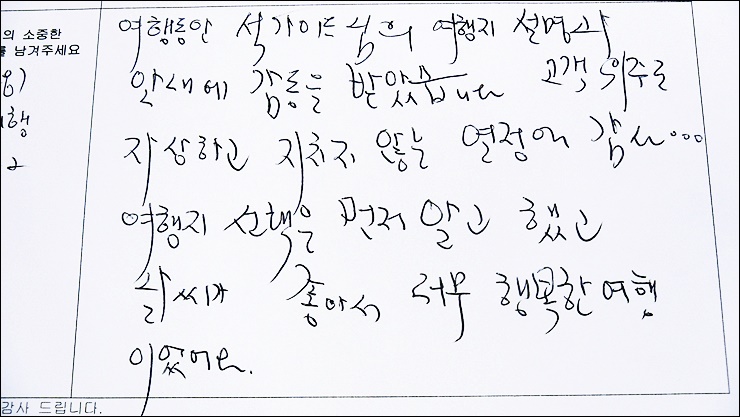 의 소중한
남겨주세요
여행동안 석가이드님의 여행지 설명과
안내에 감동을 받았습니다 고객 위주로
자상하고 지치지 않는 열정에 감사...
여행지 선택을 먼저 알고 했고
날씨가 좋아서 너무 행복한 여행
이었어요.
감사 드립니다.